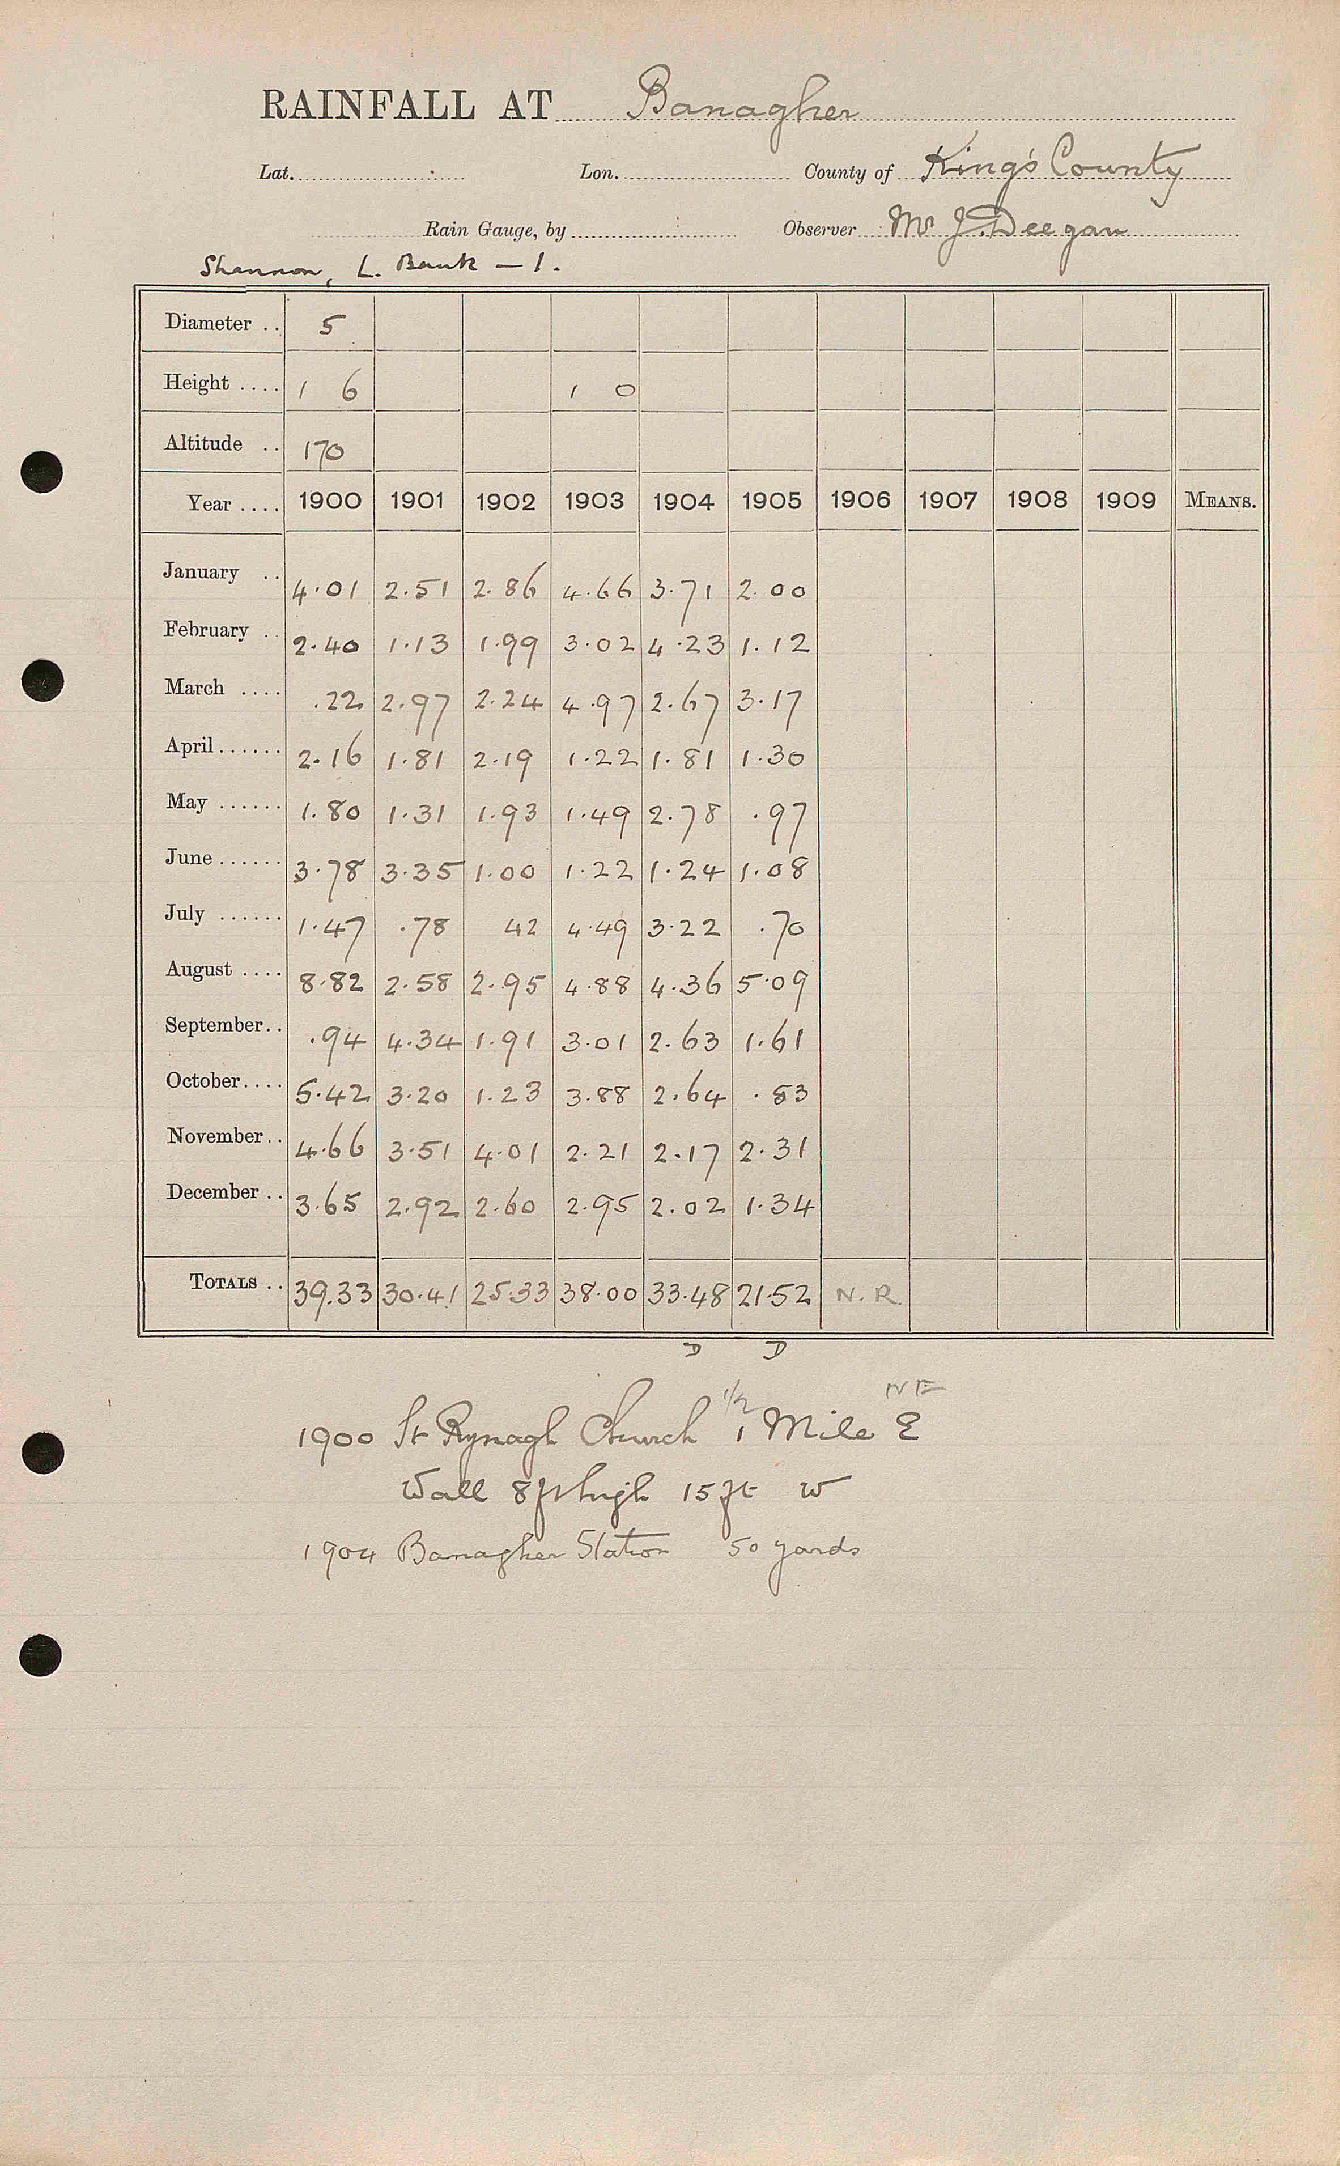 RAINFALL AT Banagher
Lat. Lon. County of King's County
Rain Gauge, by Observer Mr J. Deegan
Shannon, L. Bank — 1.
Diameter .. 5
Height .... 1 6 1 0
Altitude .. 170
Year .... 1900 1901 1902 1903 1904 1905 1906 1907 1908 1909 MEANS.
January .. 4.01 2.51 2.86 4.66 3.71 2.00
February .. 2.40 1.13 1.99 3.02 4.23 1.12
March .... .22 2.97 2.24 4.97 2.67 3.17
April ...... 2.16 1.81 2.19 1.22 1.81 1.30
May ...... 1.80 1.31 1.93 1.49 2.78 .97
June ...... 3.78 3.35 1.00 1.22 1.24 1.08
July ...... 1.47 .78 42 4.49 3.22 .70
August .... 8.82 2.58 2.95 4.88 4.36 5.09
September .. .94 4.34 1.91 3.01 2.63 1.61
October .... 5.42 3.20 1.23 3.88 2.64 .83
November .. 4.66 3.51 4.01 2.21 2.17 2.31
December .. 3.65 2.92 2.60 2.95 2.02 1.34
TOTALS .. 39.33 30.41 25.33 38.00 33.48 21.52 N.R.
D D
1/2 NE
1900 St Rynagh Church 1 Mile E
Wall 8ft high 15 ft W
1904 Banagher Station 50 yards